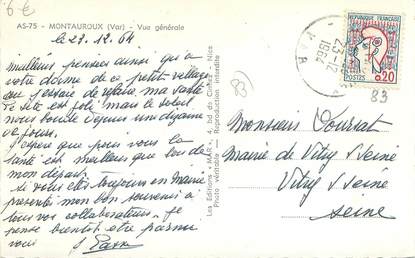 6€
AS-75 - MONTAUROUX (Var) - Vue générale
le 23.12.64
Meilleures pensées ainsi qu'à
votre dame de ce petit village
où j'essaie de refaire ma santé
le site est joli mais le soleil
nous boude depuis une dizaine
de jours.
J'espère que pour vous la
santé est meilleure que lors de
mon départ.
Si vous êtes toujours en Mairie
présenté mon bon souvenir à
tous vos collaborateurs. Je
pense bientôt être parmi
vous
Les Editions "MAR", 4, bd de Nice
Photo véritable - Reproduction interdite
83
VAR
23-12
1964
REPUBLIQUE FRANÇAISE
POSTES
0,20
83
Monsieur
Mairie de Vitry s/Seine
Vitry s/Seine
Seine